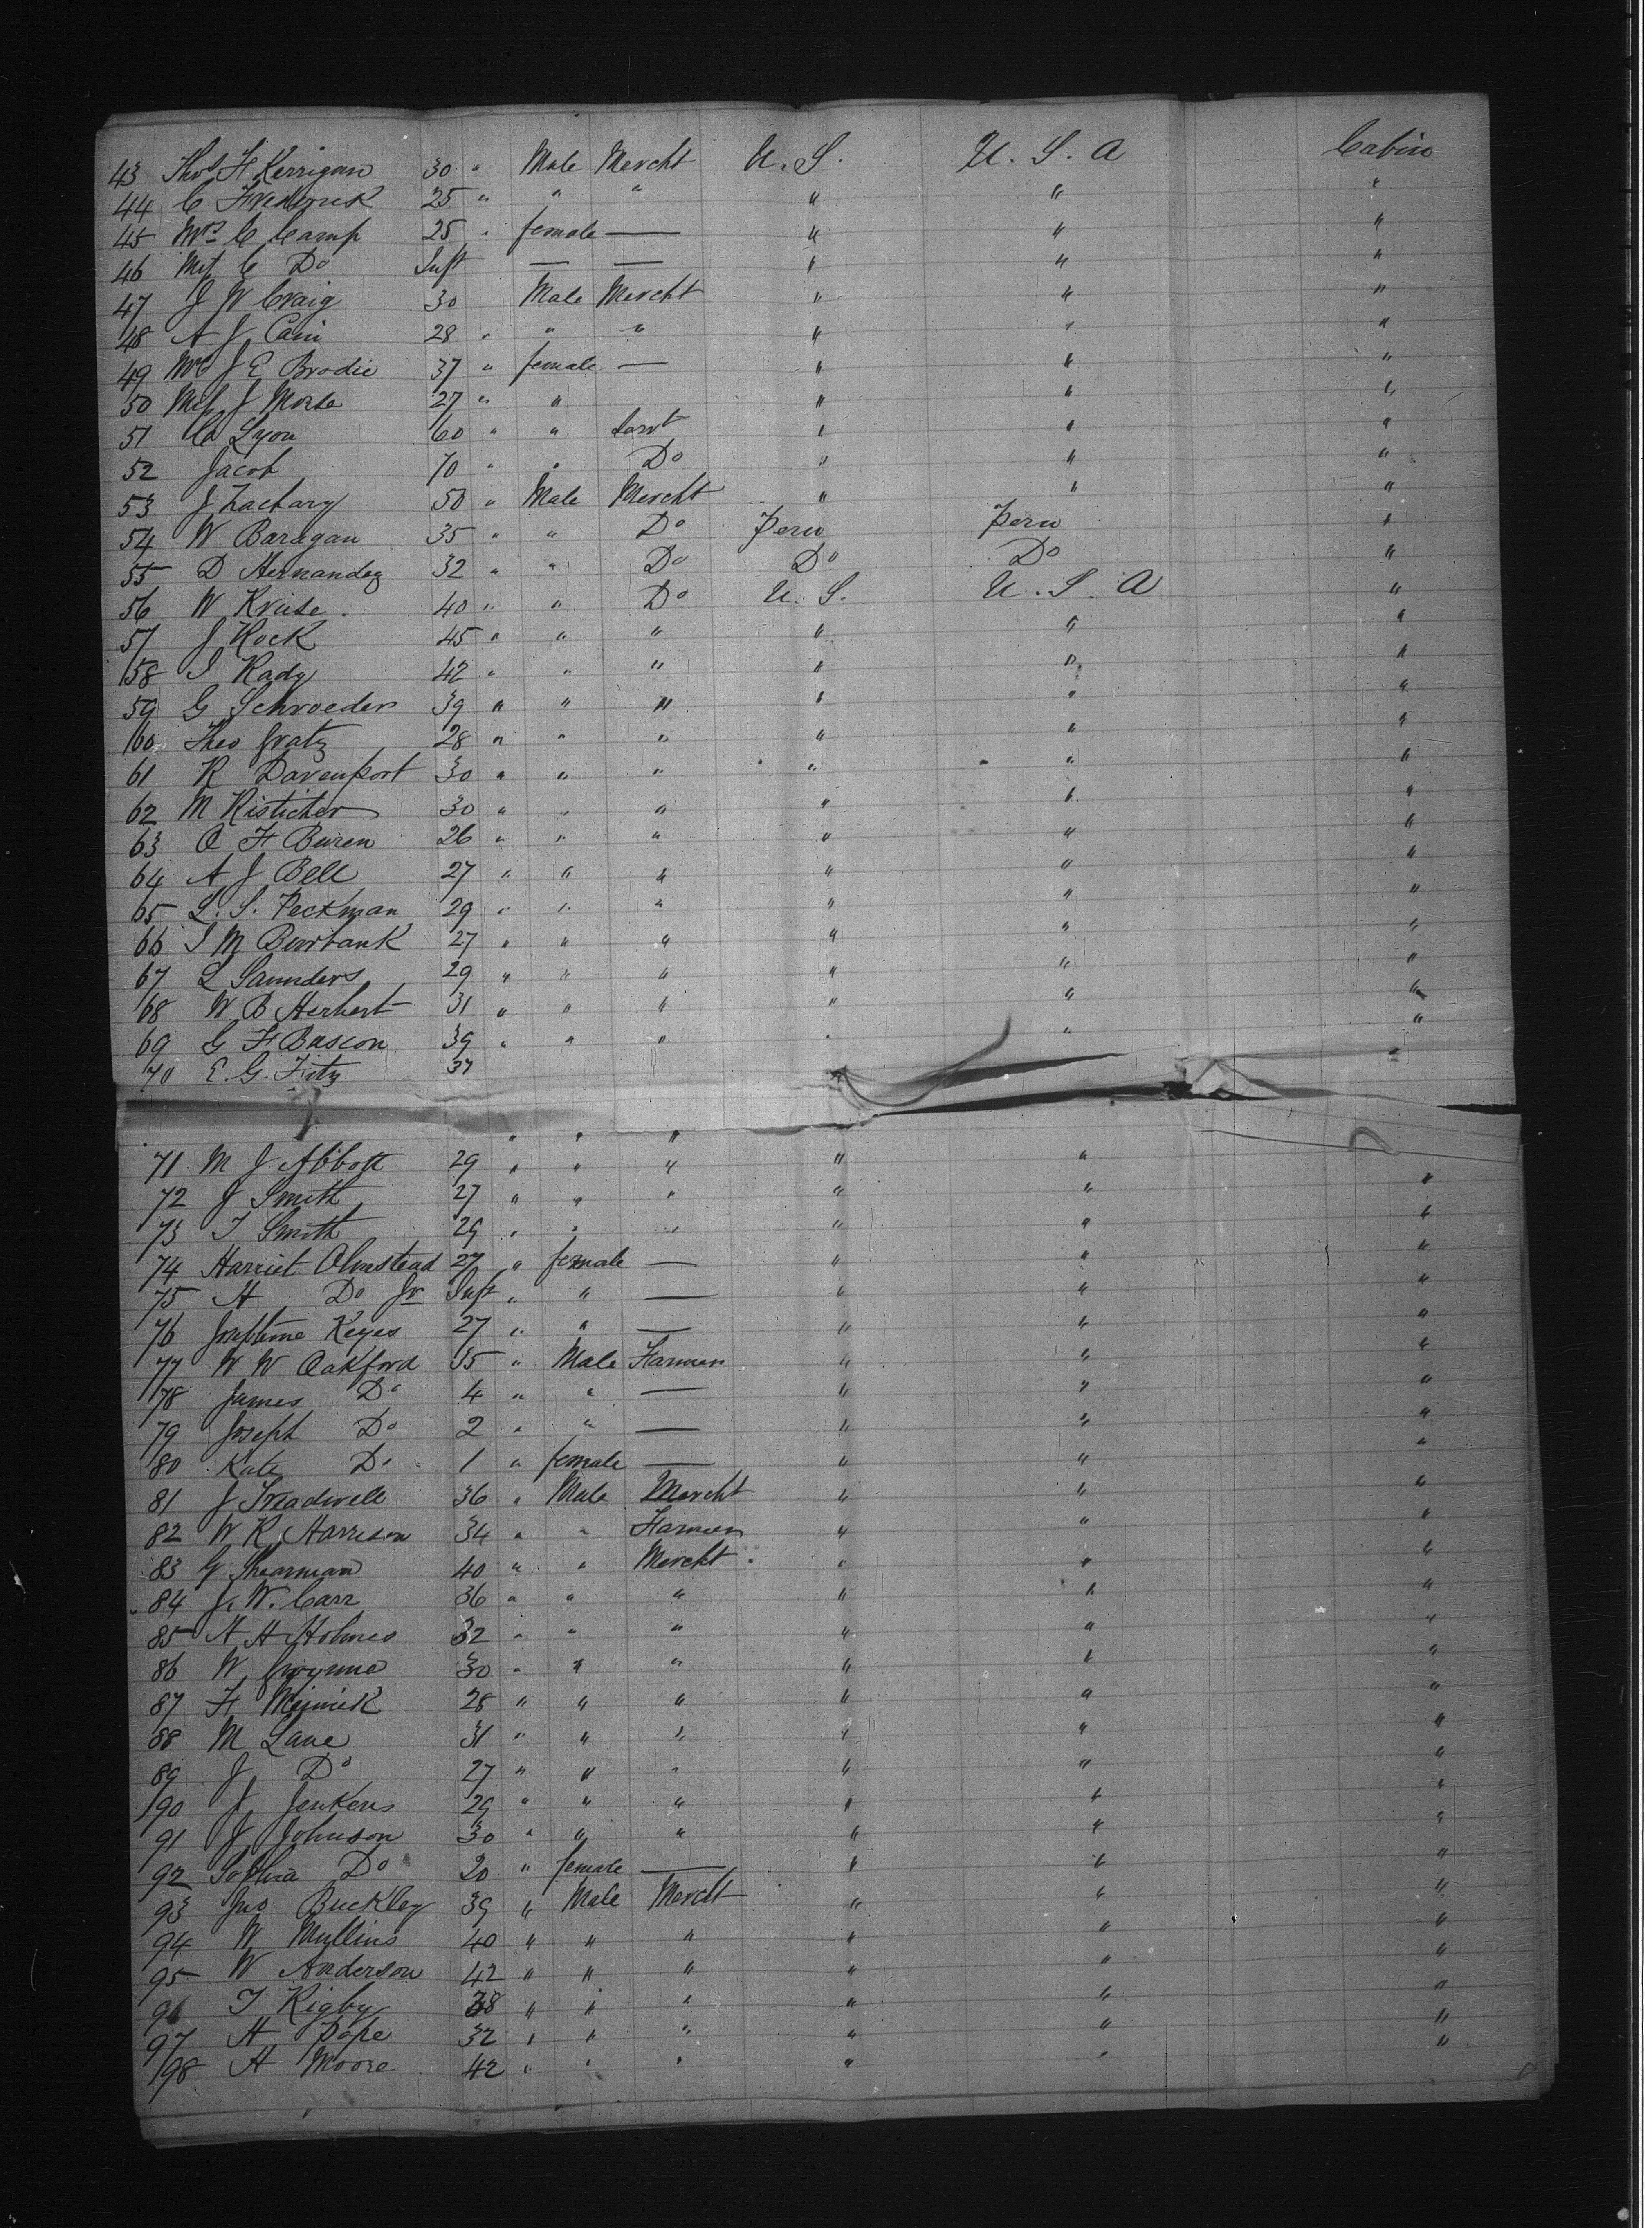 43 Thos F Kerrigan 30 " Male Mercht U. S. U. S. A Cabin
44 C Frederick 25 " " " " " "
45 Mrs C Camp 25 " female — " " "
46 C Do Inft — — " " "
47 J W Craig 30 Male Mercht " " "
48 A J Cain 28 " " " " " "
49 Mrs J E Brodie 37 " female — " " "
50 J Morse 27 " " " " "
51 C Lyon 60 " " Servt " " "
52 Jacob 70 " " Do " " "
53 J Zachary 50 " Male Mercht " " "
54 W Baragan 35 " " Do Peru Peru "
55 D Hernandez 32 " " Do Do Do "
56 W Kruse 40 " " Do U. S. U. S. A "
57 J Rock 45 " " " " " "
58 Rady 42 " " " " " "
59 G Schroeder 39 " " " " " "
60 Theo Gratz 28 " " " " " "
61 R Davenport 30 " " " " " "
62 M 30 " " " " " "
63 O F Buren 26 " " " " " "
64 A J Bell 27 " " " " " "
65 L. S. Peckman 29 " " " " " "
66 M Burbank 27 " " " " " "
67 L Saunders 29 " " " " " "
68 W B Herbert 31 " " " " " "
69 G F Bascon 39 " " " " " "
70 E. G. Fitz 37
" " "
71 M J Abbott 29 " " " " "
72 J Smith 27 " " " " " "
73 T Smith 29 " " " " " "
74 Harriet Olmstead 27 " female — " " "
75 H Do Jr Inft " " — " " "
76 Josephine Keyes 27 " " — " " "
77 W W Oakford 35 " Male Farmer " " "
78 James Do 4 " " — " " "
79 Joseph Do 2 " " — " " "
80 Kate Do 1 " female — " " "
81 J Treadwell 36 " Male Mercht " " "
82 W R Harrison 34 " " Farmer " " "
83 G Shearman 40 " " Mercht " " "
84 J. W. Carr 36 " " " " " "
85 H Holmes 32 " " " " " "
86 W Gwynne 30 " " " " " "
87 F 28 " " " " " "
88 M Lane 31 " " " " " "
89 J Do 27 " " " " " "
90 J Jenkens 29 " " " " " "
91 J Johnson 30 " " " " " "
92 Sophia Do 20 " female — " " "
93 Jno Buckley 39 " Male Mercht " " "
94 W Mullins 40 " " " " " "
95 W Anderson 42 " " " " " "
96 T Rigby 38 " " " " " "
97 H Pope 32 " " " " " "
98 H Moore 42 " " " " " "